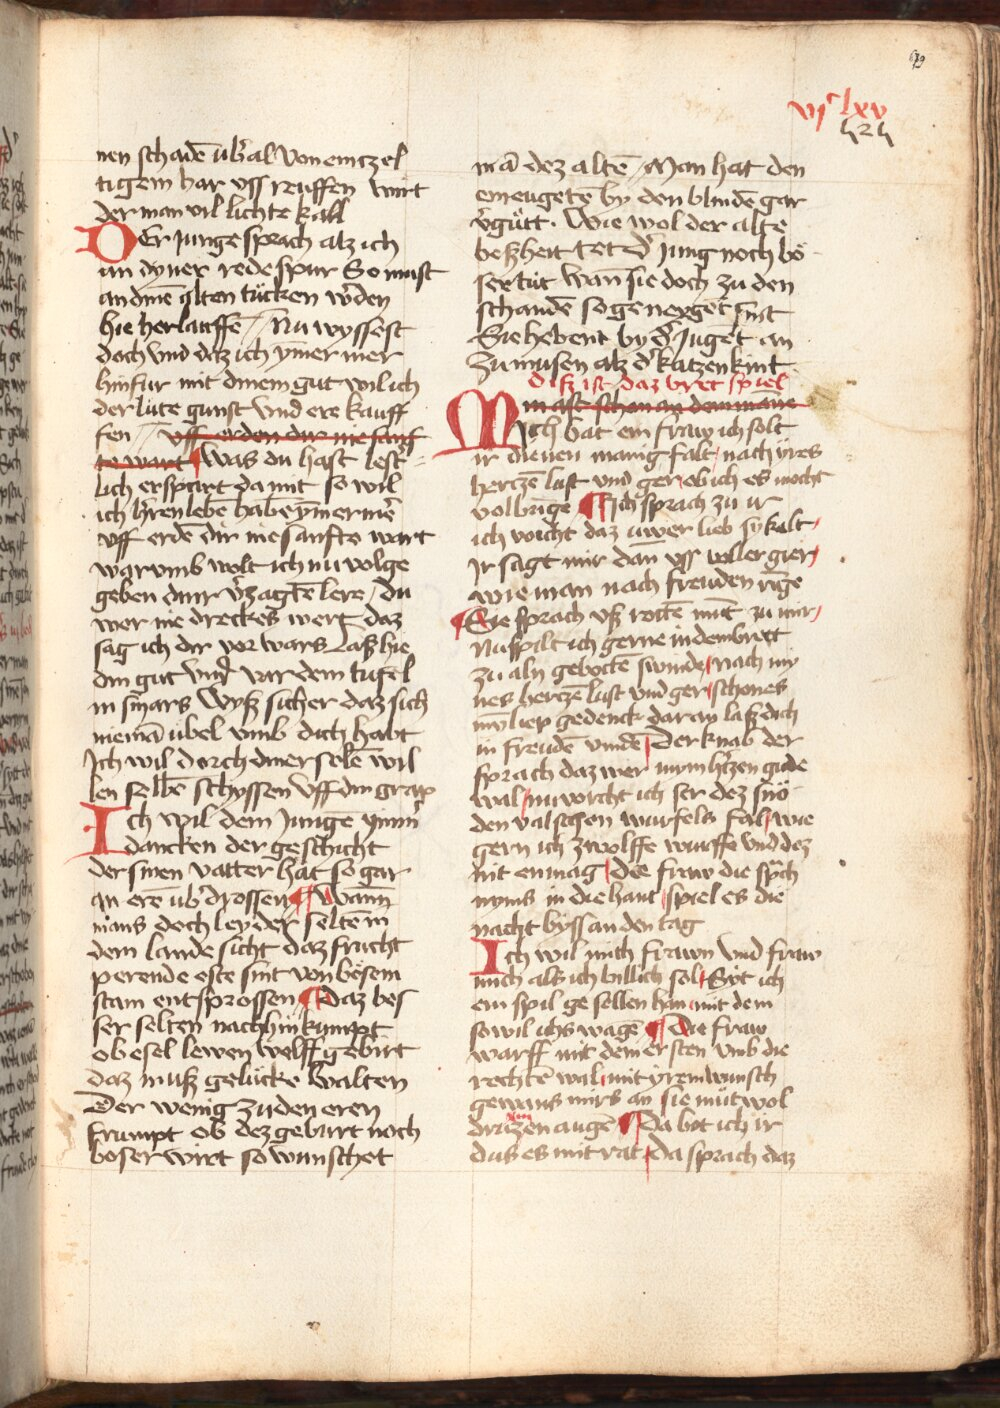 vjᶜ lxv
nen schadē ub̄al von eintzel
tigem har vss reuffen wirt
der man vil lichte kall
Der junge sprach alz ich
an dyner rede spur So must
an dinē alten tücken w̄den
hie her lauffē Nu wyssest
doch vnd daz ich ȳmer mer
hinfur mit dinem gut wil ich
der lüte gunst vnd ere kauff
fen vff erden dir nie sanf
te wart Was du hast lest̄
lich erspart da mit so wil
ich h̄ren lebē habē ȳmer mē
vff erdē dir nie sanfte wart
warvmb wolt ich nu volge
geben diner v̄zagtē lere / du
wer nie dreckes wert daz
sag ich dir vor wars Laß hie
din gut vnd var dem tufel
in sin ars Wyß sicher daz sich
niemā ubel vmb dich habt
Ich wil dorch diner selē wil
len selbē schyssen vff din grap
Ich wil dem Junge ym̄er
dancken der geschicht
der sinen vatter hat so gar
an erē ub̄drossen Wann
mans doch leyder seltē in
dem lande sicht daz frucht
perende este sint von bösem
stam entsprossen Daz bes
ser selten nach hin kumpt
ob esel lewen wolff gebirt
daz muß gelücke walten
Der wenig zu den eren
krumpt ob dez geburt noch
boser wirt so wunschet
mā dez altē Man hat den
eineugetē by den blindē gar
v̄gütt. Wie wol der alte
beßheit tet d̄ jung noch bö
ser tüt wan sie doch zu den
schandē so geneyget sint
Sie hebent by d̄ Jugēt an
zu musen alz d̄ katzen kint
Diß ist daz bret spiel
Mich bat ein fraw ich solt
ir dienen manig falt nach yres
hertzē lust vnd ger ob ich es mocht
volbringē Ich sprach zu ir
ich vorcht daz uwer lieb sy kalt
Ir sagt mir dan vss voller gier
wie man nach freuden ringe
Sie sprach vß rotē munt zu mir
Nu spilt ich gerne in dem brett
zu aln gebotē swinde nach mi
nes hertzē lust vnd ger schones
liep gedenck daran laß dich
in freudē vindē Der knab der
sprach daz wer mym h̄tzen gude
wal nu vorcht ich ser dez snö
den valschen wurfels fal wie
gern ich zwolffe wurffe vnd dez
nit en mag Die fraw die sp̄ch
nyms in die hant spiel es die
nacht byss an den tag
Ich wil mich frawn vnd fraw
mich als ich billich sol Syt ich
ein spil gesellen han mit dem
so wil ichs wagē Die fraw
warff mit dem ersten vmb die
rechtē wal mit yrem wunsch
gewans mirs an sie müt wol
augē Da bot ich ir
duß es mit rat da sprach daz